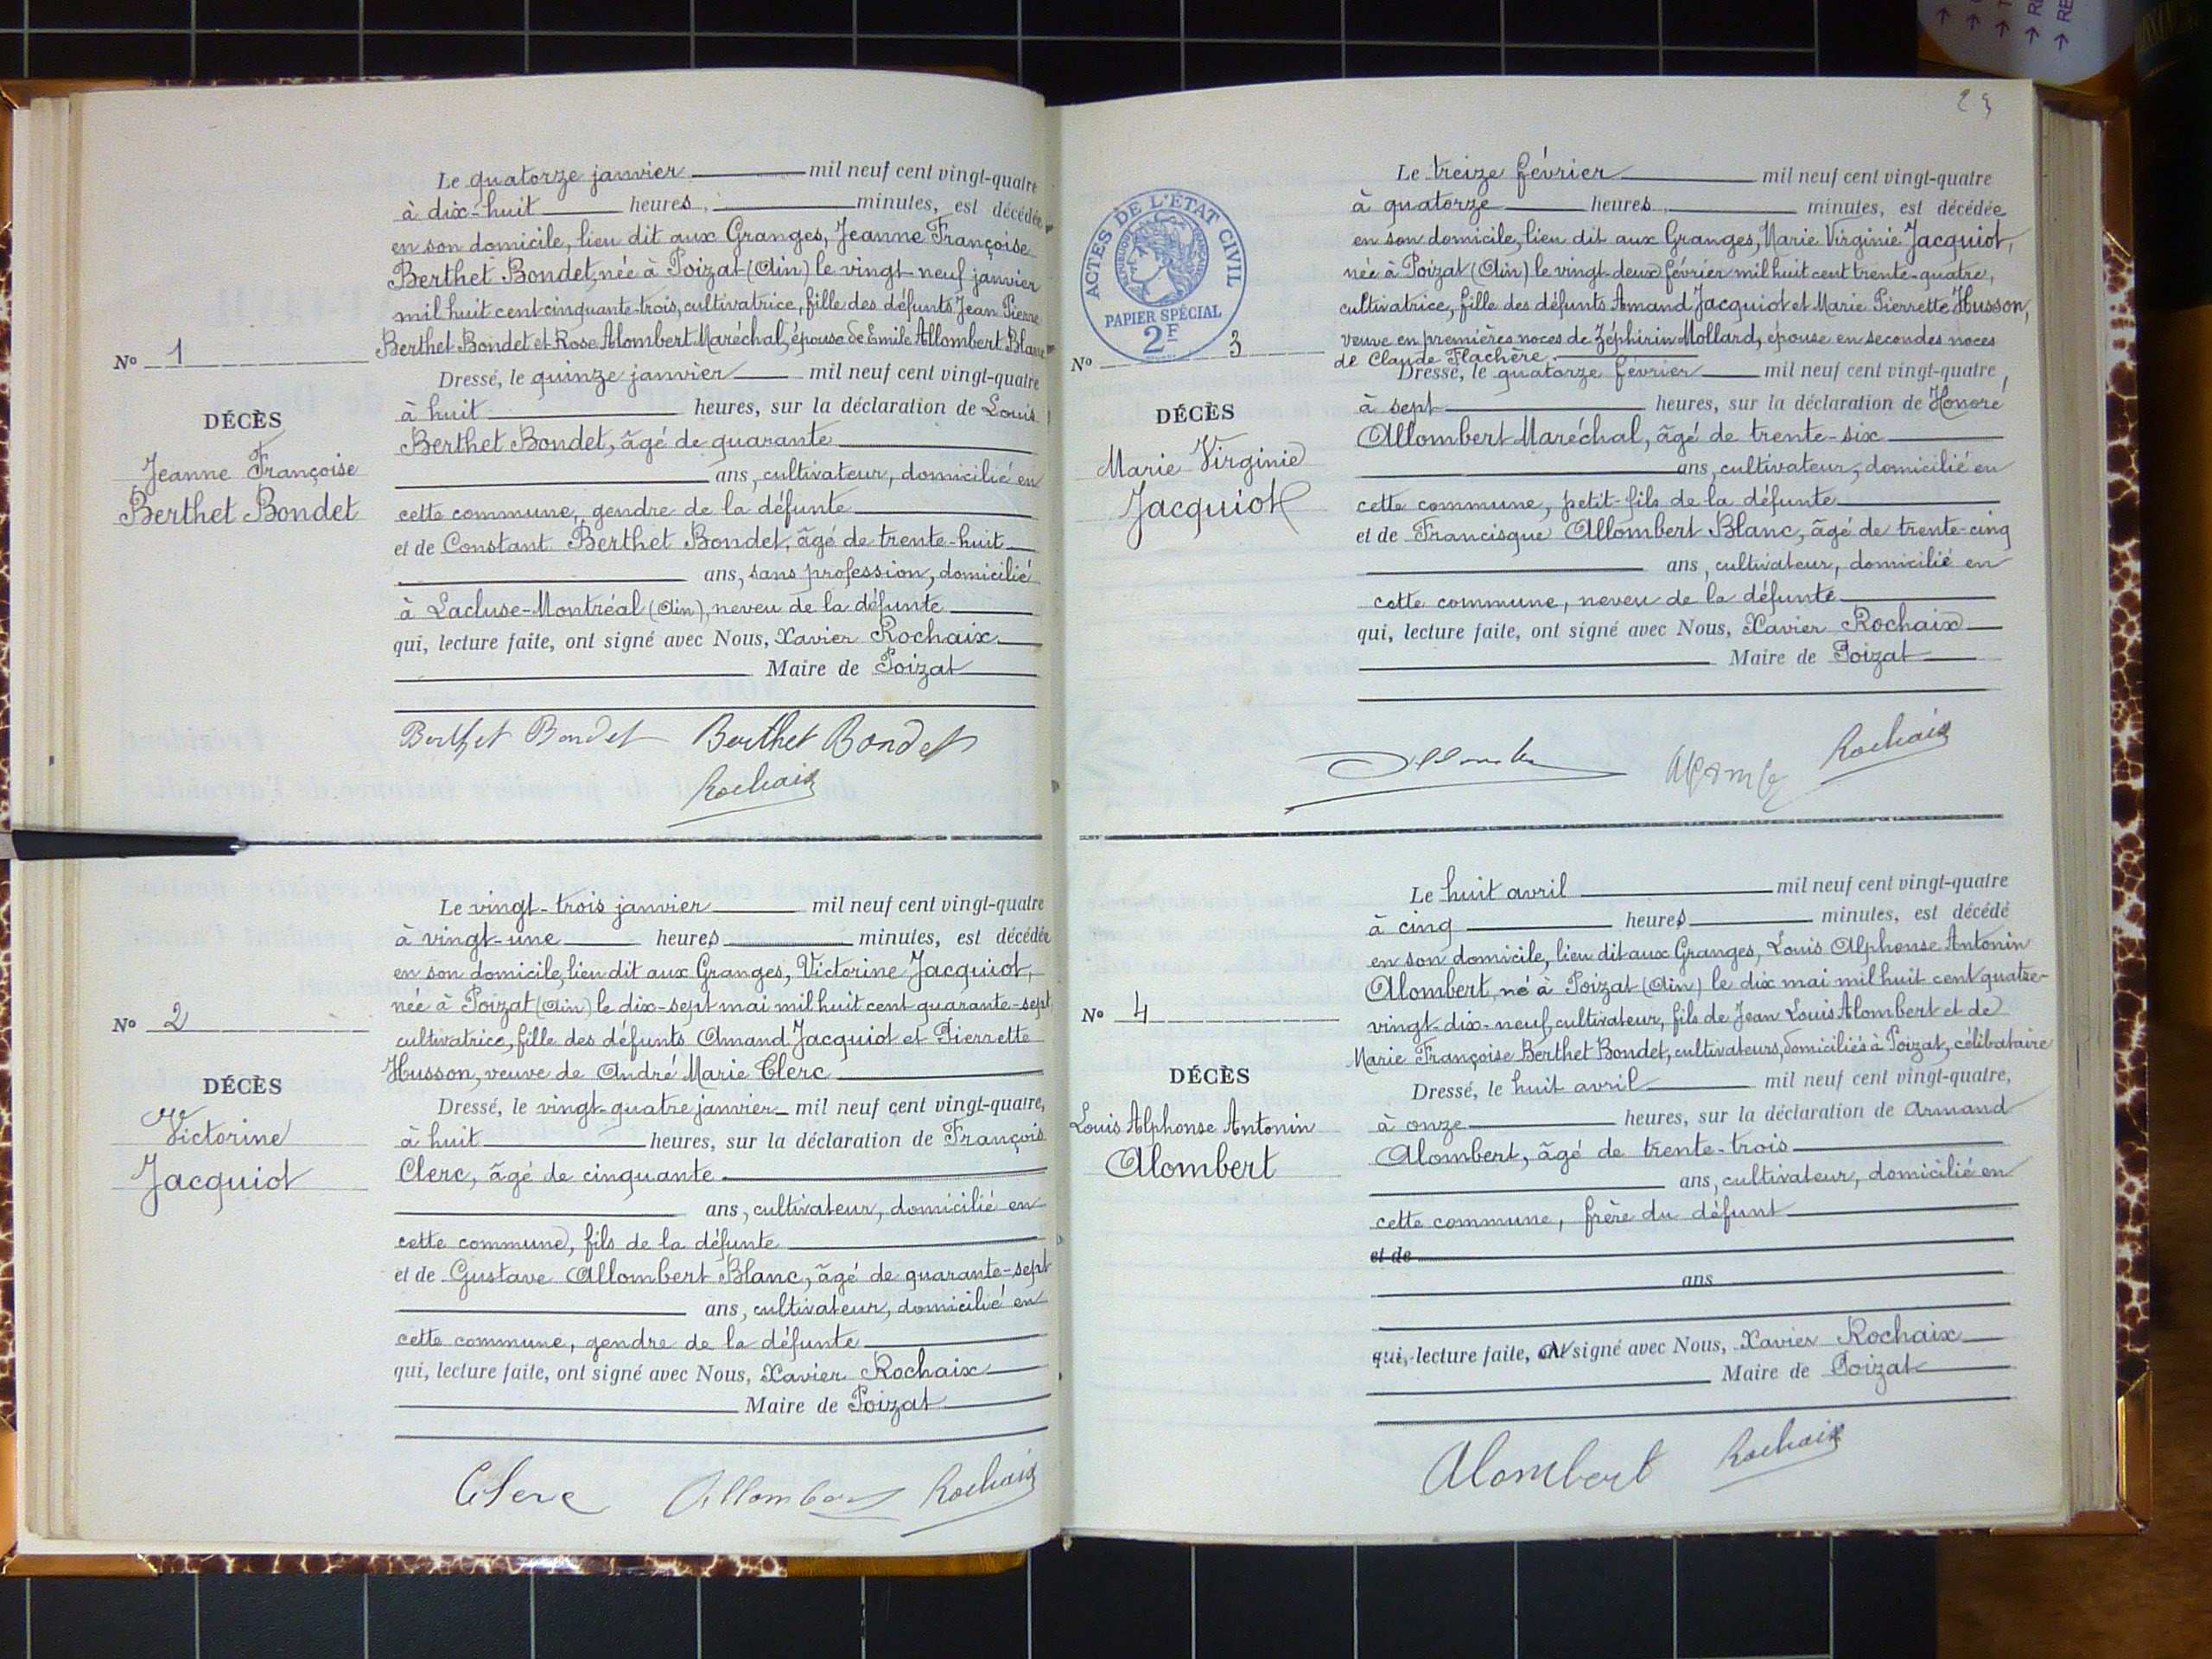 Le quatorze janvier mil neuf cent vingt-quatre
à dix-huit heures, minutes, est décédée
en son domicile, lieu dit aux Granges, Jeanne Françoise
Berthet Bondet, née à Poizat (Ain) le vingt-neuf janvier
mil huit cent cinquante-trois, cultivatrice, fille des défunts Jean Pierre
Berthet Bondet et Rose Alombert Maréchal, épouse de Emile Allombert Blanc
No 1
Dressé, le quinze janvier mil neuf cent vingt-quatre
à huit heures, sur la déclaration de Louis
DÉCÈS
Berthet Bondet, âgé de quarante
Jeanne Françoise
ans, cultivateur, domicilié en
Berthet Bondet
cette commune, gendre de la défunte
et de Constant Berthet Bondet, âgé de trente-huit
ans, sans profession, domicilié
à Lacluse-Montréal (Ain), neveu de la défunte
qui, lecture faite, ont signé avec Nous, Xavier Rochaix
Maire de Poizat
Berthet Bondet Berthet Bondet
Rochaix
Le vingt-trois janvier mil neuf cent vingt-quatre
à vingt-une heures minutes, est décédée
en son domicile, lieu dit aux Granges, Victorine Jacquiot,
née à Poizat (Ain) le dix-sept mai mil huit cent quarante-sept,
No 2
cultivatrice, fille des défunts Amand Jacquiot et Pierrette
Husson, veuve de André Marie Clerc
DÉCÈS
Dressé, le vingt-quatre janvier mil neuf cent vingt-quatre,
Victorine
à huit heures, sur la déclaration de François
Jacquiot
Clerc, âgé de cinquante
ans, cultivateur, domicilié en
cette commune, fils de la défunte
et de Gustave Allombert Blanc, âgé de quarante-sept
ans, cultivateur, domicilié en
cette commune, gendre de la défunte
qui, lecture faite, ont signé avec Nous, Xavier Rochaix
Maire de Poizat
Clerc Allombert Rochaix
23
ACTES DE L'ÉTAT CIVIL
RÉPUBLIQUE FRANÇAISE
PAPIER SPÉCIAL
2F
Le treize février mil neuf cent vingt-quatre
à quatorze heures minutes, est décédée
en son domicile, lieu dit aux Granges, Marie Virginie Jacquiot,
née à Poizat (Ain) le vingt-deux février mil huit cent trente-quatre,
cultivatrice, fille des défunts Amand Jacquiot et Marie Pierrette Husson,
veuve en premières noces de Zéphirin Mollard, épouse en secondes noces
No 3
de Claude Flachère.
Dressé, le quatorze février mil neuf cent vingt-quatre,
à sept heures, sur la déclaration de Honoré
DÉCÈS
Allombert Maréchal, âgé de trente-six
Marie Virginie
ans, cultivateur, domicilié en
Jacquiot
cette commune, petit-fils de la défunte
et de Francisque Allombert Blanc, âgé de trente-cinq
ans, cultivateur, domicilié en
cette commune, neveu de la défunte
qui, lecture faite, ont signé avec Nous, Xavier Rochaix
Maire de Poizat
Rochaix
Le huit avril mil neuf cent vingt-quatre
à cinq heures minutes, est décédé
en son domicile, lieu dit aux Granges, Louis Alphonse Antonin
Alombert, né à Poizat (Ain) le dix mai mil huit cent quatre-
No 4
vingt-dix-neuf, cultivateur, fils de Jean Louis Alombert et de
Marie Françoise Berthet Bondet, cultivateurs, domiciliés à Poizat, célibataire
DÉCÈS
Dressé, le huit avril mil neuf cent vingt-quatre,
Louis Alphonse Antonin
à onze heures, sur la déclaration de Armand
Alombert
Alombert, âgé de trente-trois
ans, cultivateur, domicilié en
cette commune, frère du défunt
et de
ans
qui, lecture faite, a signé avec Nous, Xavier Rochaix
Maire de Poizat
Alombert Rochaix